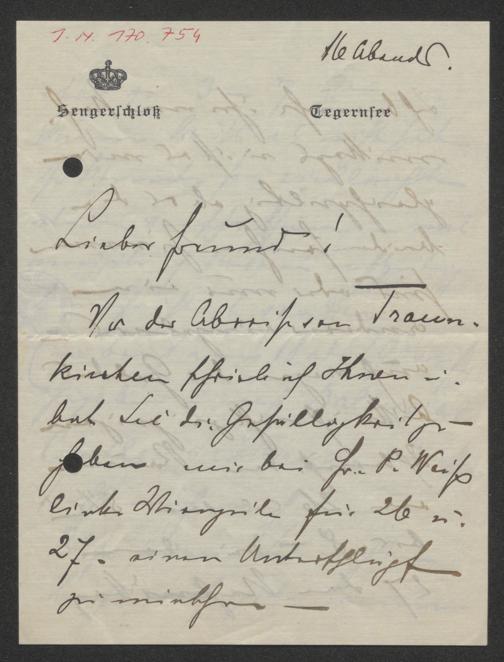 J.N. 170.754
16 Abends.
Sengerschloß Tegernsee
Lieber Freund!
Vor der Abreise von Traun-
kirchen schrieb ich Ihnen u.
bat Sie die Gefälligkeit zu
haben mir bei Fr. P. Weiß
linke Wienzeile für 26 u.
27. einen Unterschlupf
zu miethen —